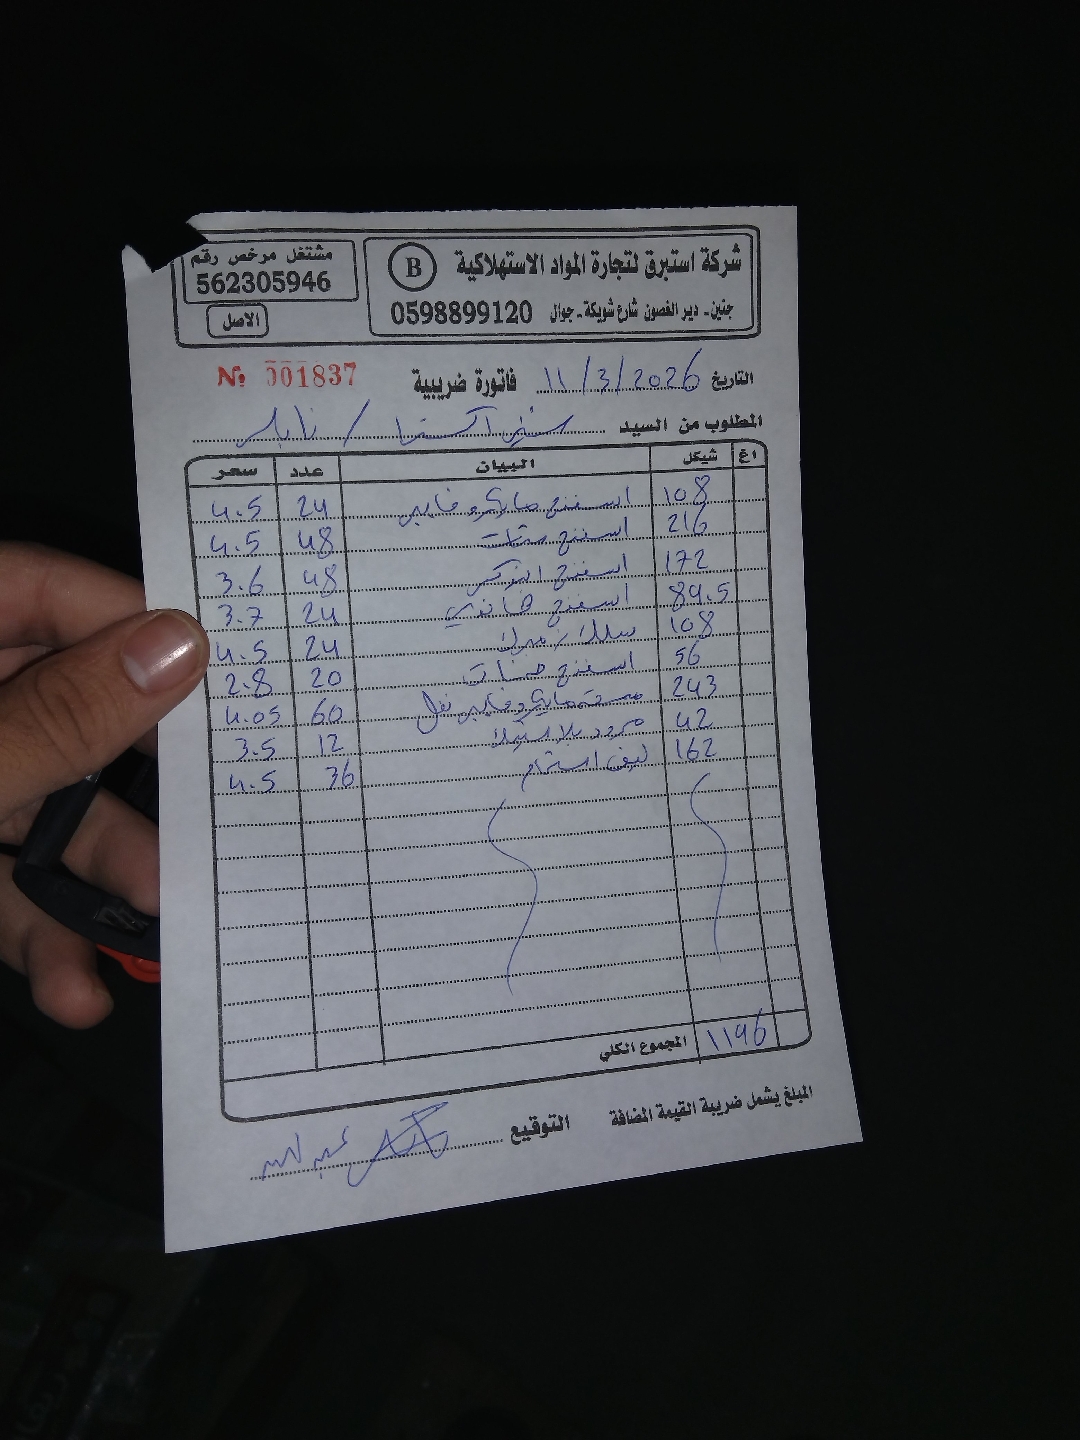 شركة استبرق لتجارة المواد الاستهلاكية
B
جنين - دير الغصون شارع شويكة - جوال 0598899120
مشتغل مرخص رقم
562305946
الاصل
التاريخ 11/3/2026 فاتورة ضريبية
№ 001837
المطلوب من السيد / نابلس
اغ شيكل البيان عدد سعر
108 اسفنج مايكروفايبر 24 4.5
216 اسفنج 48 4.5
172 اسفنج 48 3.6
89.5 اسفنج 24 3.7
108 سلك 24 4.5
56 اسفنج 20 2.8
243 مايكروفايبر 60 4.05
42 12 3.5
162 ليف استحمام 36 4.5
المجموع الكلي 1196
المبلغ يشمل ضريبة القيمة المضافة
التوقيع